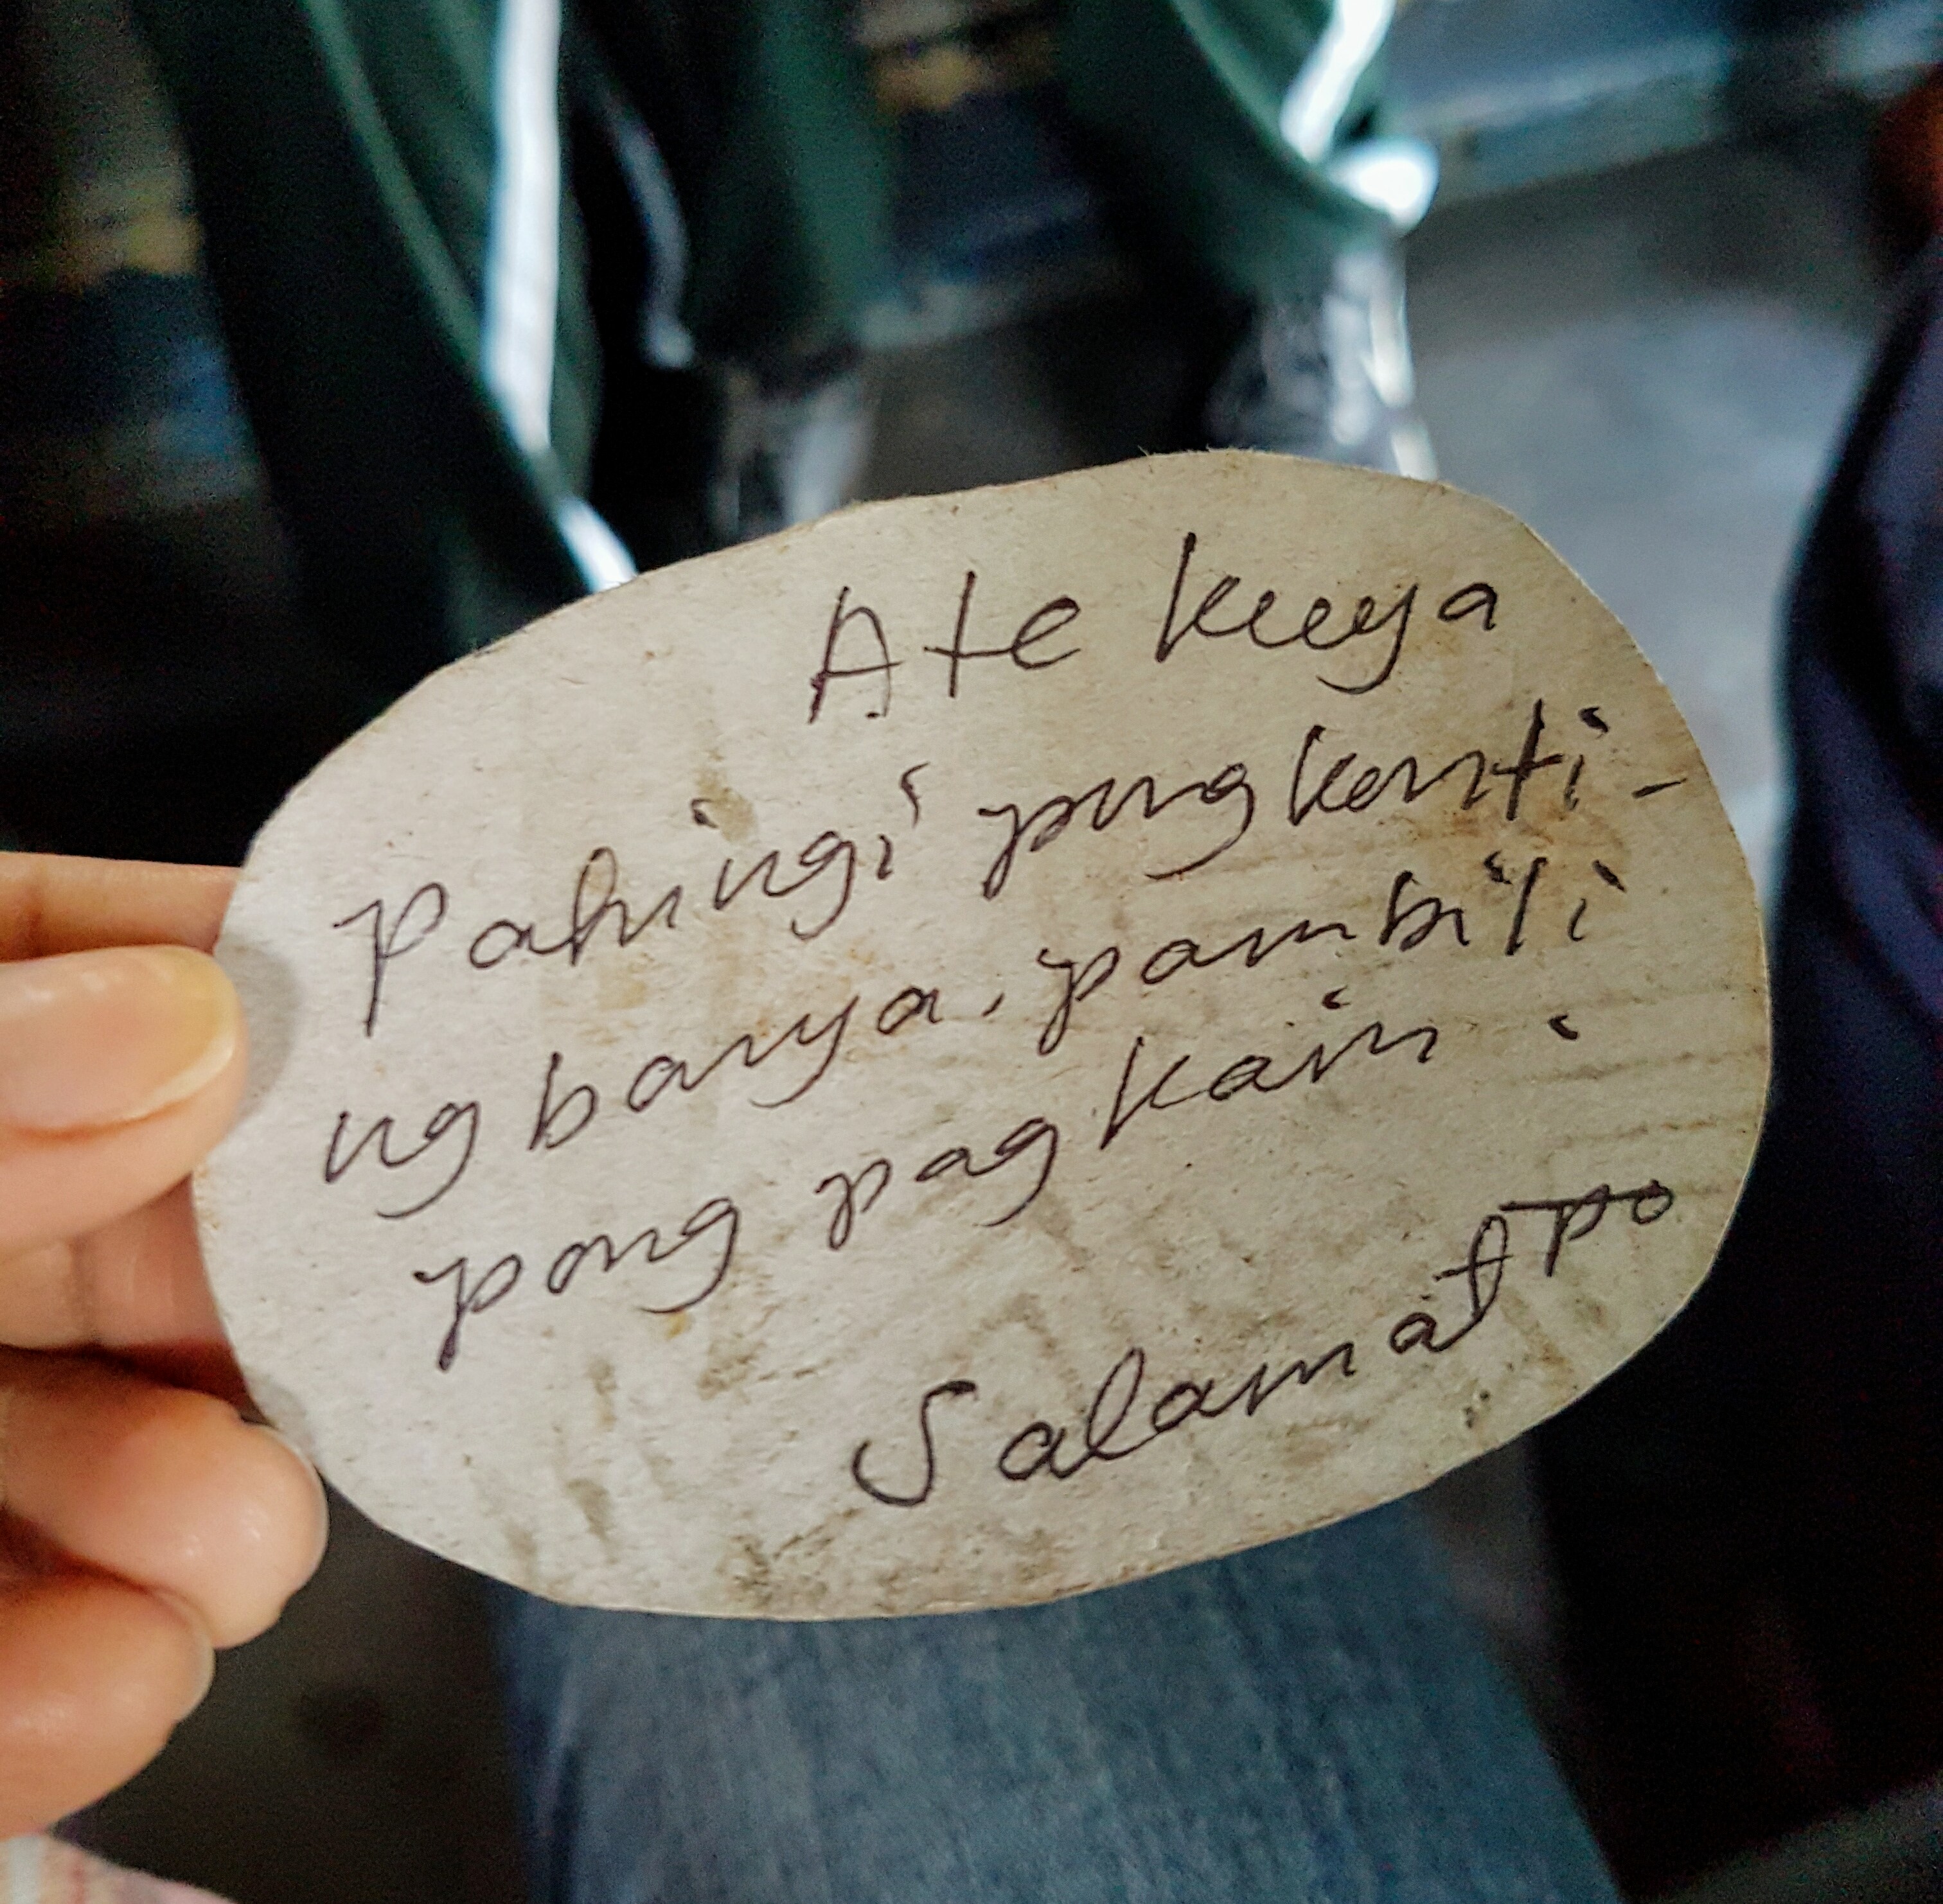 Ate kuya
Pahingi pong konti-
ng barya, pambili
pong pagkain.
Salamat po